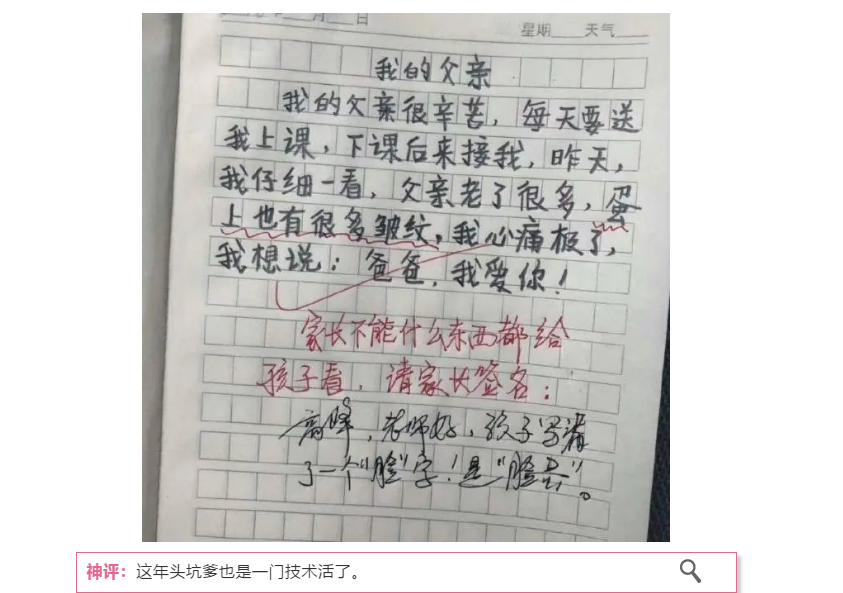 月 日
星期 天气
我的父亲
我的父亲很辛苦，每天要送
我上课，下课后来接我，昨天，
我仔细一看，父亲老了很多，蛋
上也有很多皱纹，我心痛极了，
我想说：爸爸，我爱你！
家长不能什么东西都给
孩子看，请家长签名：
高峰，老师好，孩子写漏
了一个“脸”字！是“脸蛋”。
神评：这年头坑爹也是一门技术活了。